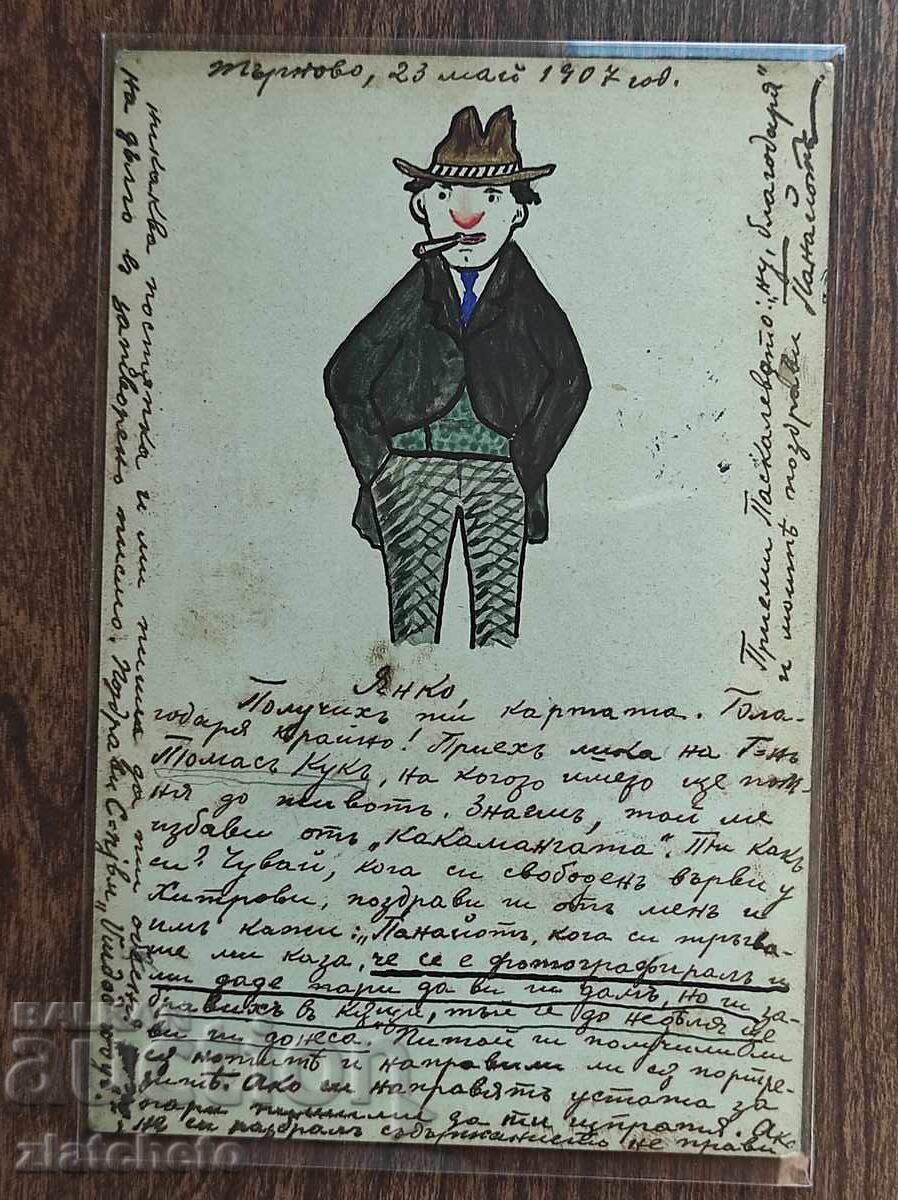 Търново, 23 май 1907 год.
Янко,
Получихъ ти картата. Бла-
годаря крайно! Приехъ лика на Г=нъ
Томасъ Кукъ, на когото името ще пом-
ня до животъ. Знаешъ, той ме
избави отъ „Какамангата". Ти какъ
си? Чувай, кога си свободенъ върви у
Хитрови, поздрави ги отъ менъ и
имъ кажи: „Панайотъ, кога си тръгва-
ше ми каза, че се е фотографиралъ и
ми даде пари да ви ги дамъ, но ги за-
бравихъ в кѫщи, тъй че до недѣля ще
ви ги донеса." Питай ги получили ли
сѫ нотитѣ и направили ли сѫ портре-
титѣ. Ако си направятъ устата за
пари пиши ми да ти изпратя. Ако
не си разбралъ съдържанието не прави
никаква постѫпка и ми пиши да ти обясня
на дълго въ затворено писмо. Поздрави
Приеми Паскалевото: „ну, благодаря"
и моитѣ поздрави Панайотъ
BALKAN
auction
zlatcheto